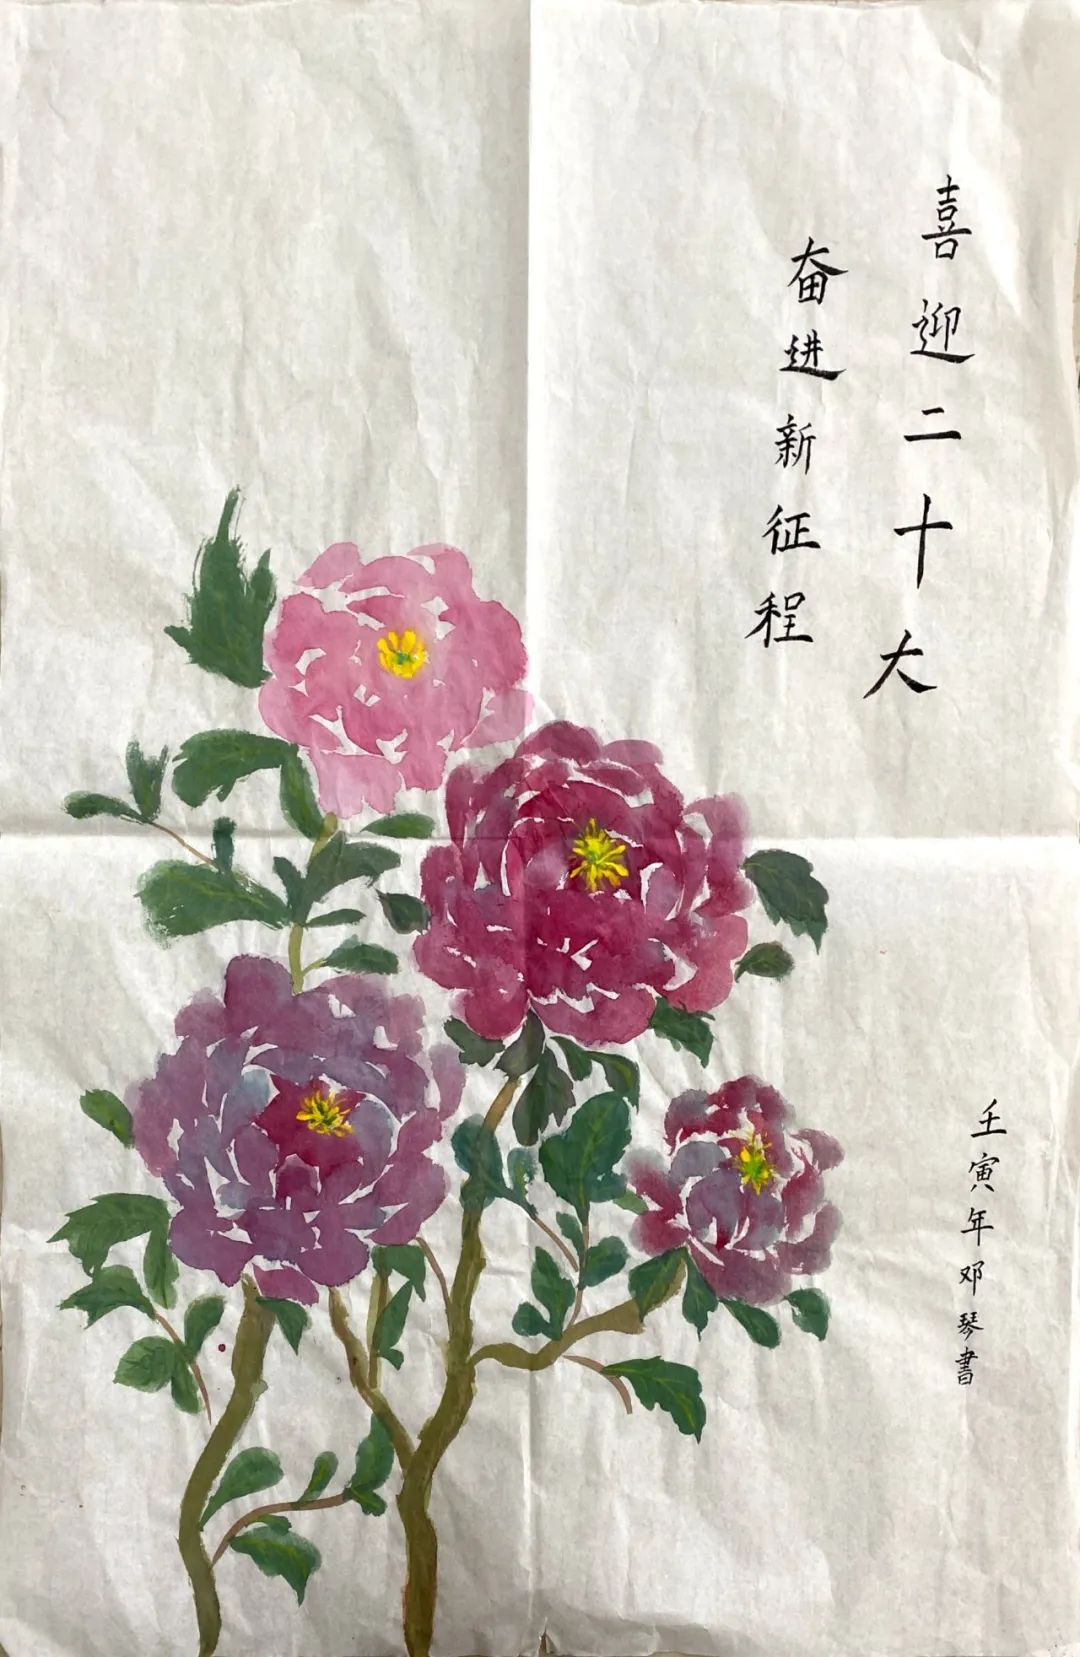 喜迎二十大
奋进新征程
壬寅年邓琴書